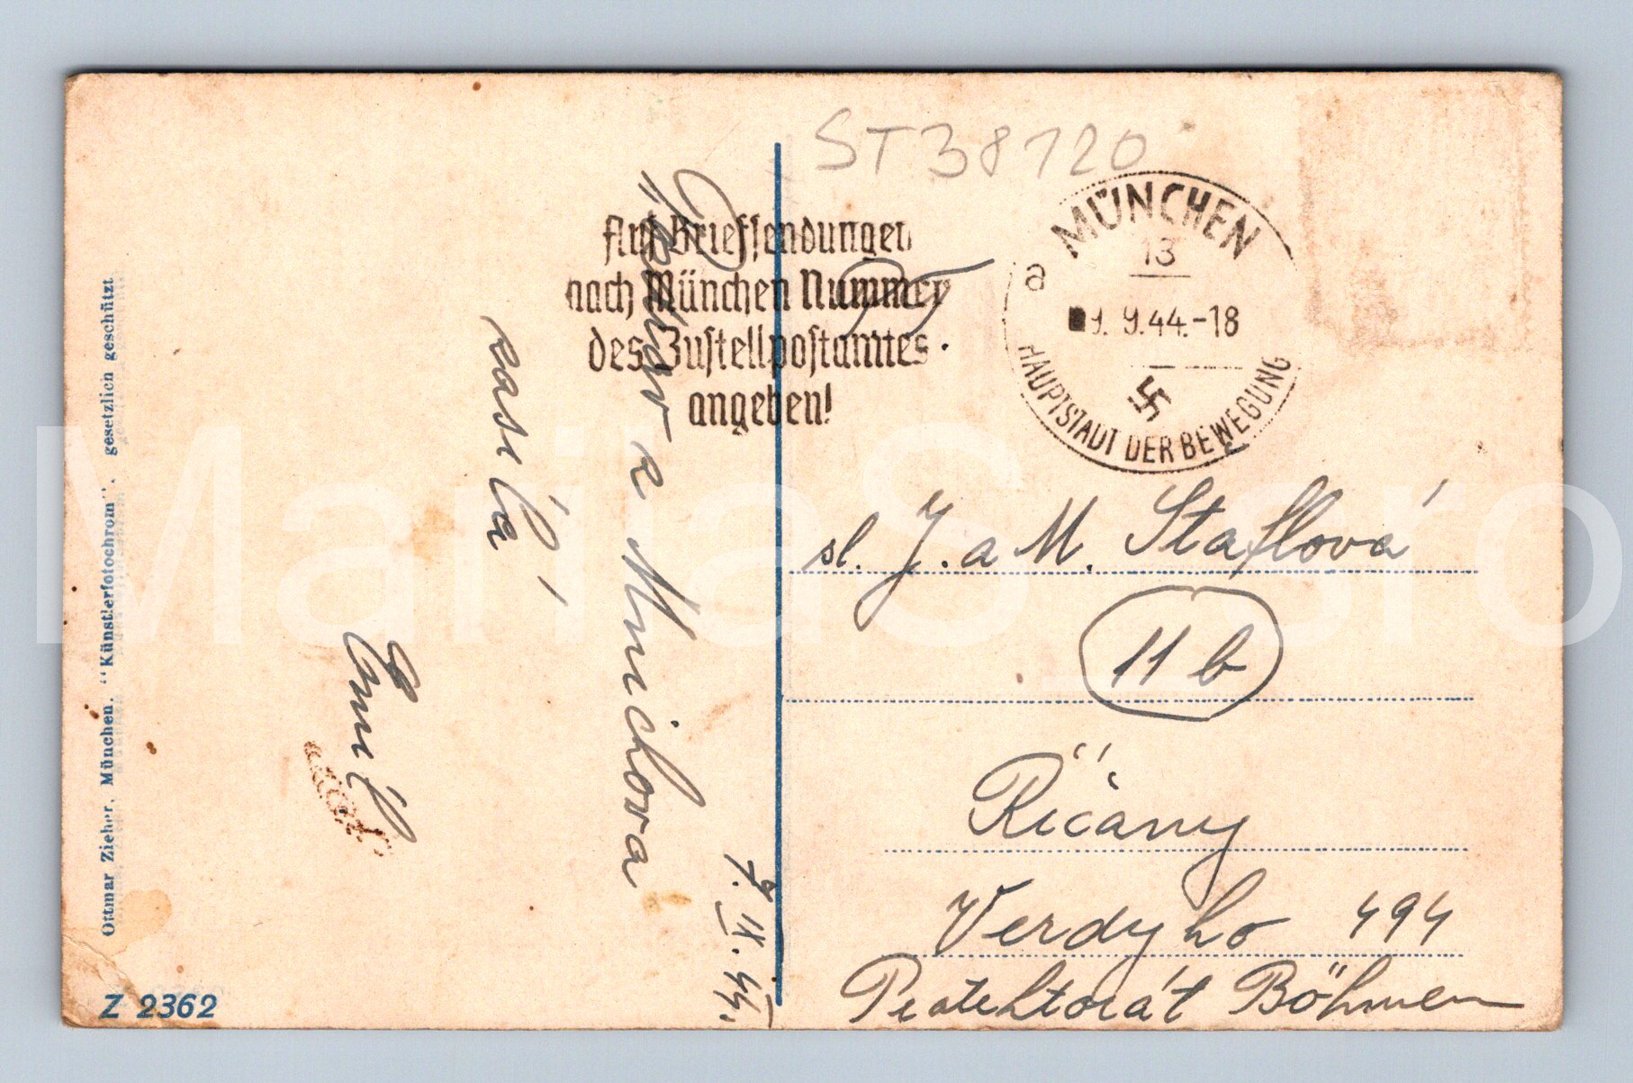 ST38120
Auf Briefsendungen
nach München Nummer
des Zustellpostamtes
angeben!
MÜNCHEN
13
a
9. 9.44.-18
HAUPTSTADT DER BEWEGUNG
7. IX. 44.
z Mnichova
zasílá
Emil
sl. J. a M. Štaflová
11 b
Říčany
Verdyho 494
Protektorát Böhmen
Ottmar Zieher, München. "Künstlerfotochrom". gesetzlich geschützt
Z 2362
MariaS_sro